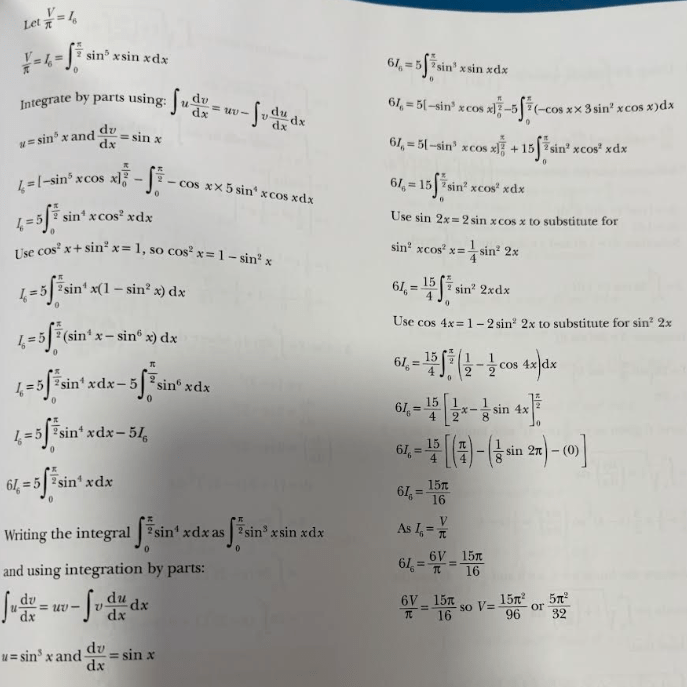 Let V/π = I₆
V/π = I₆ = ∫₀^(π/2) sin⁵ x sin x dx
Integrate by parts using: ∫u dv/dx = uv − ∫v du/dx dx
u = sin⁵ x and dv/dx = sin x
I₆ = [−sin⁵ x cos x]₀^(π/2) − ∫₀^(π/2) − cos x × 5 sin⁴ x cos x dx
I₆ = 5∫₀^(π/2) sin⁴ x cos² x dx
Use cos² x + sin² x = 1, so cos² x = 1 − sin² x
I₆ = 5∫₀^(π/2) sin⁴ x(1 − sin² x) dx
I₆ = 5∫₀^(π/2) (sin⁴ x − sin⁶ x) dx
I₆ = 5∫₀^(π/2) sin⁴ x dx − 5∫₀^(π/2) sin⁶ x dx
I₆ = 5∫₀^(π/2) sin⁴ x dx − 5I₆
6I₆ = 5∫₀^(π/2) sin⁴ x dx
Writing the integral ∫₀^(π/2) sin⁴ x dx as ∫₀^(π/2) sin³ x sin x dx
and using integration by parts:
∫u dv/dx = uv − ∫v du/dx dx
u = sin³ x and dv/dx = sin x
6I₆ = 5∫₀^(π/2) sin³ x sin x dx
6I₆ = 5[−sin³ x cos x]₀^(π/2) − 5∫₀^(π/2) (−cos x × 3 sin² x cos x) dx
6I₆ = 5[−sin³ x cos x]₀^(π/2) + 15∫₀^(π/2) sin² x cos² x dx
6I₆ = 15∫₀^(π/2) sin² x cos² x dx
Use sin 2x = 2 sin x cos x to substitute for
sin² x cos² x = 1/4 sin² 2x
6I₆ = 15/4 ∫₀^(π/2) sin² 2x dx
Use cos 4x = 1 − 2 sin² 2x to substitute for sin² 2x
6I₆ = 15/4 ∫₀^(π/2) (1/2 − 1/2 cos 4x) dx
6I₆ = 15/4 [1/2 x − 1/8 sin 4x]₀^(π/2)
6I₆ = 15/4 [(π/4) − (1/8 sin 2π) − (0)]
6I₆ = 15π/16
As I₆ = V/π
6I₆ = 6V/π = 15π/16
6V/π = 15π/16 so V = 15π²/96 or 5π²/32